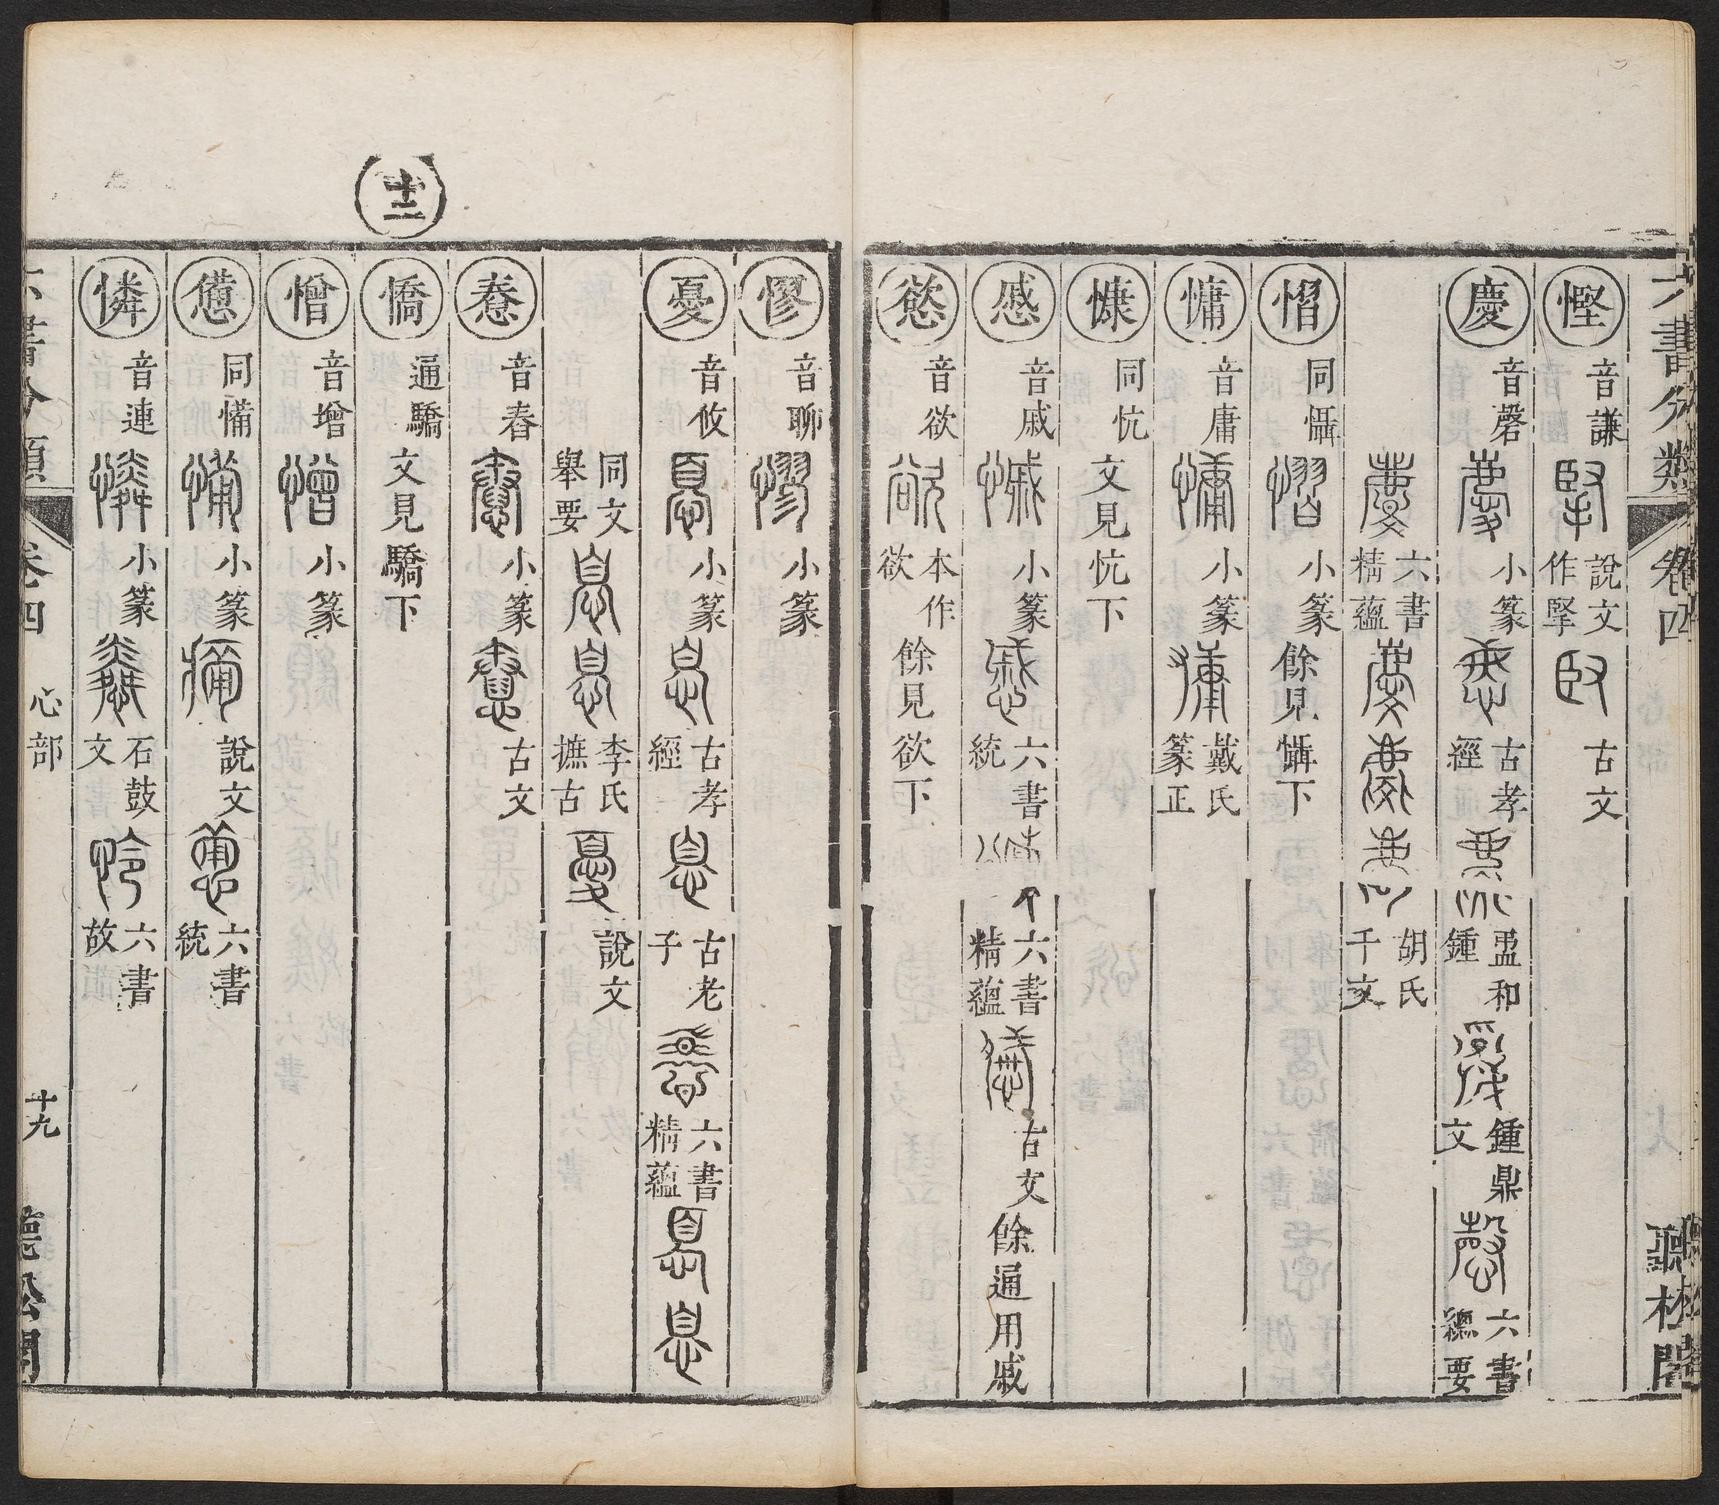 六書分類 卷四 聽松閣
慳 音謙 說文作掔 古文
慶 音磬 小篆 古孝經 盄和鍾 鍾鼎文 六書總要
六書精蘊 胡氏千文
慴 同懾 小篆 餘見懾下
慵 音庸 小篆 戴氏篆正
慷 同忼 文見忼下
慼 音戚 小篆 六書統 六書精蘊 古文 餘通用戚
慾 音欲 本作欲 餘見欲下
憀 音聊 小篆
憂 音攸 小篆 古孝經 古老子 六書精蘊
同文舉要 李氏摭古 說文
惷 音春 小篆 古文
十二
憍 通驕 文見驕下
憎 音增 小篆
憊 同㤳 小篆 說文 六書統
憐 音連 小篆 石鼓文 六書故
六書分類 卷四 心部 十九 聽松閣